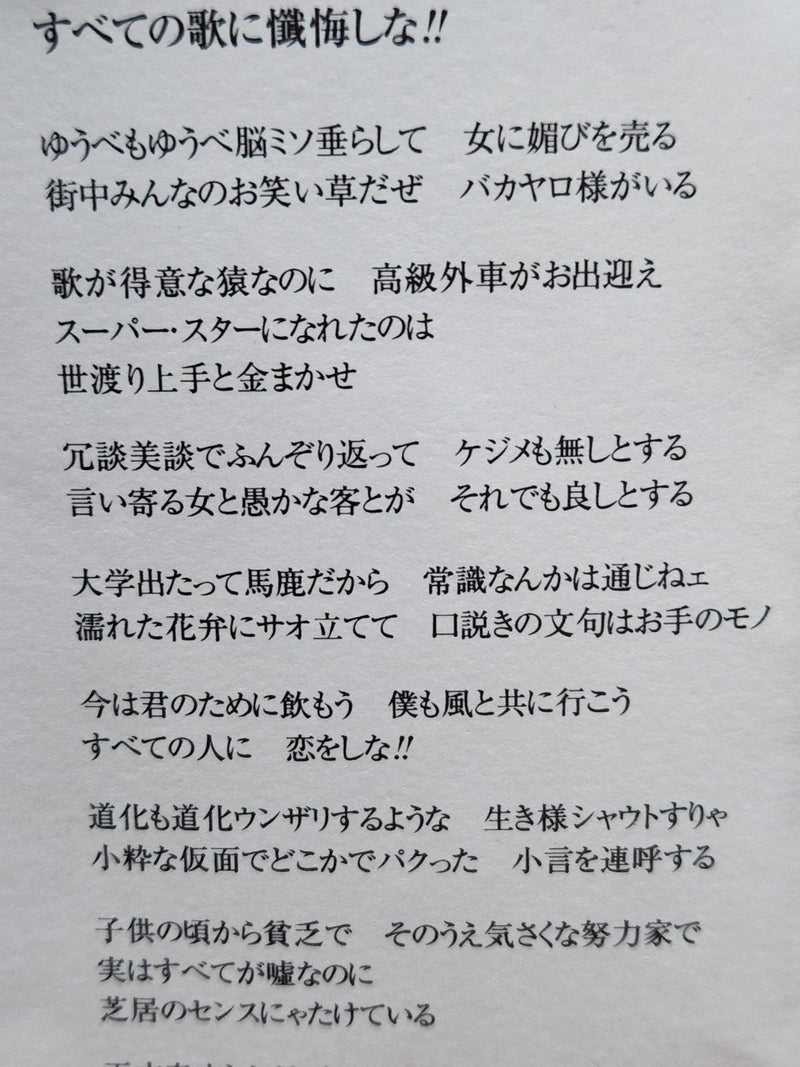 すべての歌に懺悔しな!!
ゆうべもゆうべ脳ミソ垂らして　女に媚びを売る
街中みんなのお笑い草だぜ　バカヤロ様がいる
歌が得意な猿なのに　高級外車がお出迎え
スーパー・スターになれたのは
世渡り上手と金まかせ
冗談美談でふんぞり返って　ケジメも無しとする
言い寄る女と愚かな客とが　それでも良しとする
大学出たって馬鹿だから　常識なんかは通じねェ
濡れた花弁にサオ立てて　口説きの文句はお手のモノ
今は君のために飲もう　僕も風と共に行こう
すべての人に　恋をしな!!
道化も道化ウンザリするような　生き様シャウトすりゃ
小粋な仮面でどこかでパクった　小言を連呼する
子供の頃から貧乏で　そのうえ気さくな努力家で
実はすべてが嘘なのに
芝居のセンスにゃたけている